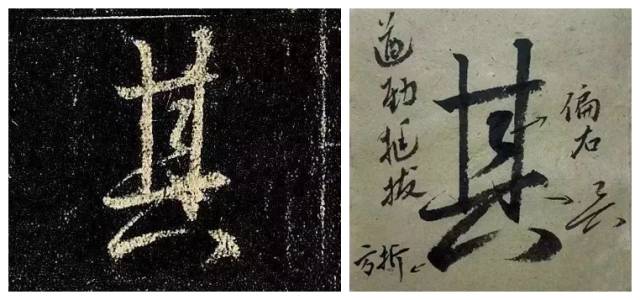 其
其
遒劲挺拔
偏右
方折